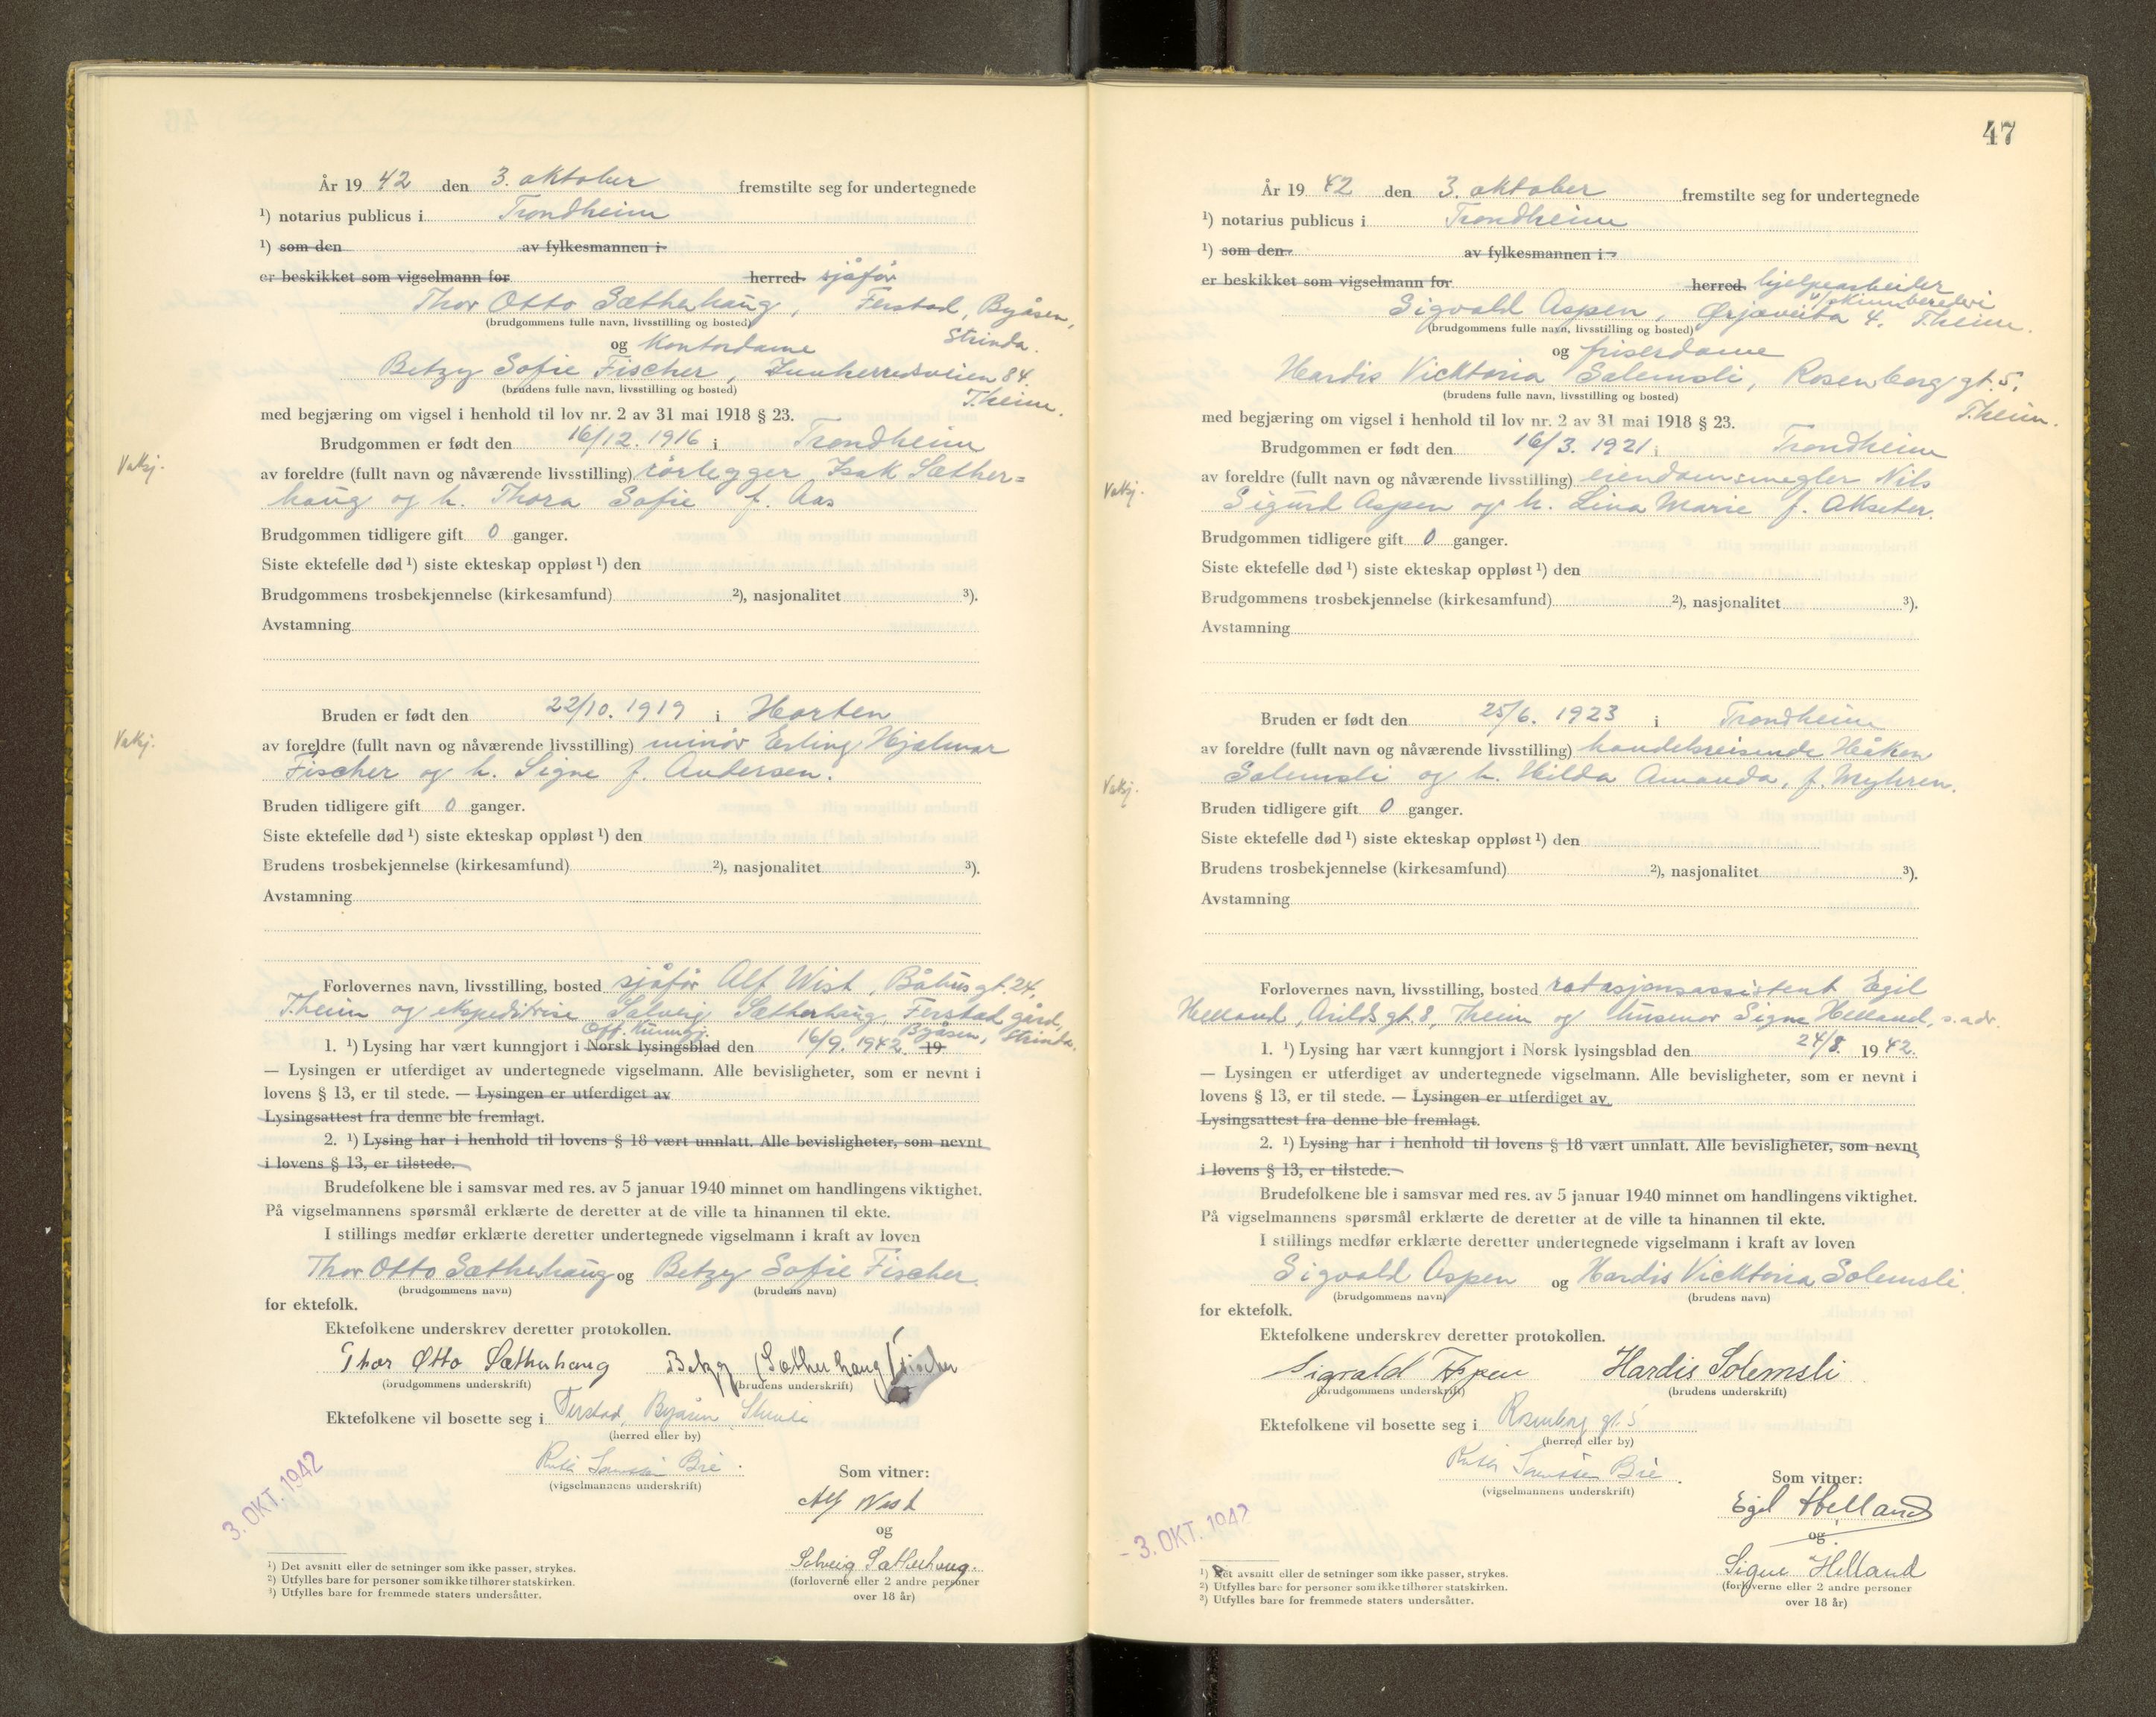 År 19 42 den 3. oktober fremstilte seg for undertegnede
¹) notarius publicus i Trondheim
¹) som den av fylkesmannen i
er beskikket som vigselmann for herred. sjåfør
Thor Otto Sætherhaug, Ferstad, Byåsen,
(brudgommens fulle navn, livsstilling og bosted)
Strinda.
og Kontordame
Betzy Sofie Fischer, Innherredsveien 84.
(brudens fulle navn, livsstilling og bosted)
T.heim.
med begjæring om vigsel i henhold til lov nr. 2 av 31 mai 1918 § 23.
Brudgommen er født den 16/12. 1916 i Trondheim
Vaksj.
av foreldre (fullt navn og nåværende livsstilling) rørlegger Isak Sæther=
haug og h. Thora Sofie f. Aas
Brudgommen tidligere gift 0 ganger.
Siste ektefelle død ¹) siste ekteskap oppløst ¹) den
Brudgommens trosbekjennelse (kirkesamfund) ²), nasjonalitet ³).
Avstamning
Bruden er født den 22/10. 1919 i Horten
Vaksj.
av foreldre (fullt navn og nåværende livsstilling) minør Erling Hjalmar
Fischer og h. Signe f. Andersen.
Bruden tidligere gift 0 ganger.
Siste ektefelle død ¹) siste ekteskap oppløst ¹) den
Brudens trosbekjennelse (kirkesamfund) ²), nasjonalitet ³).
Avstamning
Forlovernes navn, livsstilling, bosted sjåfør Alf Wist, Båhus gt. 24,
T.heim og ekspeditrise Solveig Sætherhaug, Ferstad gård,
Off. Kunngj. Byåsen, Strinda.
1. ¹) Lysing har vært kunngjort i Norsk lysingsblad den 16/9. 1942. 19
— Lysingen er utferdiget av undertegnede vigselmann. Alle bevisligheter, som er nevnt i
lovens § 13, er til stede. — Lysingen er utferdiget av
Lysingsattest fra denne ble fremlagt.
2. ¹) Lysing har i henhold til lovens § 18 vært unnlatt. Alle bevisligheter, som nevnt
i lovens § 13, er tilstede.
Brudefolkene ble i samsvar med res. av 5 januar 1940 minnet om handlingens viktighet.
På vigselmannens spørsmål erklærte de deretter at de ville ta hinannen til ekte.
I stillings medfør erklærte deretter undertegnede vigselmann i kraft av loven
Thor Otto Sætherhaug og Betzy Sofie Fischer.
(brudgommens navn) (brudens navn)
for ektefolk.
Ektefolkene underskrev deretter protokollen.
Thor Otto Sætherhaug Betzy (Sætherhaug) Fischer
(brudgommens underskrift) (brudens underskrift)
Ektefolkene vil bosette seg i Ferstad, Byåsen Strinda
(herred eller by)
Bie.
(vigselmannens underskrift)
Som vitner:
Alf Wist
og
Solveig Sætherhaug.
(forloverne eller 2 andre personer
over 18 år)
3. OKT. 1942
¹) Det avsnitt eller de setninger som ikke passer, strykes.
²) Utfylles bare for personer som ikke tilhører statskirken.
³) Utfylles bare for fremmede staters undersåtter.
47
År 19 42 den 3. oktober fremstilte seg for undertegnede
¹) notarius publicus i Trondheim
¹) som den av fylkesmannen i
er beskikket som vigselmann for herred. hjelpearbeider
v/skinnberederi
Sigvald Aspen, Ørjaveita 4. T.heim.
(brudgommens fulle navn, livsstilling og bosted)
og friserdame
Hardis Vicktoria Solemsli, Rosenborg gt. 5,
(brudens fulle navn, livsstilling og bosted)
T.heim.
med begjæring om vigsel i henhold til lov nr. 2 av 31 mai 1918 § 23.
Brudgommen er født den 16/3. 1921 i Trondheim
Vaksj.
av foreldre (fullt navn og nåværende livsstilling) eiendomsmegler Nils
Sigurd Aspen og h. Lina Marie f. Akseter.
Brudgommen tidligere gift 0 ganger.
Siste ektefelle død ¹) siste ekteskap oppløst ¹) den
Brudgommens trosbekjennelse (kirkesamfund) ²), nasjonalitet ³).
Avstamning
Bruden er født den 25/6. 1923 i Trondheim
av foreldre (fullt navn og nåværende livsstilling) handelsreisende Håkon
Vaksj.
Solemsli og h. Hilda Amanda, f. Myhren.
Bruden tidligere gift 0 ganger.
Siste ektefelle død ¹) siste ekteskap oppløst ¹) den
Brudens trosbekjennelse (kirkesamfund) ²), nasjonalitet ³).
Avstamning
Forlovernes navn, livsstilling, bosted rotasjonsassistent Egil
Helland, Arilds gt. 8, T.heim og husmor Signe Helland, s. adr.
1. ¹) Lysing har vært kunngjort i Norsk lysingsblad den 24/8. 19 42.
— Lysingen er utferdiget av undertegnede vigselmann. Alle bevisligheter, som er nevnt i
lovens § 13, er til stede. — Lysingen er utferdiget av
Lysingsattest fra denne ble fremlagt.
2. ¹) Lysing har i henhold til lovens § 18 vært unnlatt. Alle bevisligheter, som nevnt
i lovens § 13, er tilstede.
Brudefolkene ble i samsvar med res. av 5 januar 1940 minnet om handlingens viktighet.
På vigselmannens spørsmål erklærte de deretter at de ville ta hinannen til ekte.
I stillings medfør erklærte deretter undertegnede vigselmann i kraft av loven
Sigvald Aspen og Hardis Vicktoria Solemsli.
(brudgommens navn) (brudens navn)
for ektefolk.
Ektefolkene underskrev deretter protokollen.
Sigvald Aspen Hardis Solemsli
(brudgommens underskrift) (brudens underskrift)
Ektefolkene vil bosette seg i Rosenborg gt. 5
(herred eller by)
Bie.
(vigselmannens underskrift)
Som vitner:
Egil Helland
og
Signe Helland
(forloverne eller 2 andre personer
over 18 år)
- 3. OKT. 1942
¹) Det avsnitt eller de setninger som ikke passer, strykes.
²) Utfylles bare for personer som ikke tilhører statskirken.
³) Utfylles bare for fremmede staters undersåtter.